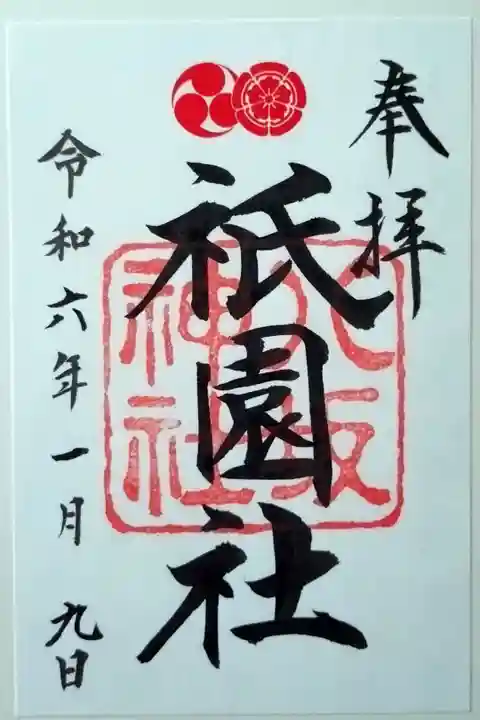 奉拝
祇園社
八坂神社
令和六年一月九日